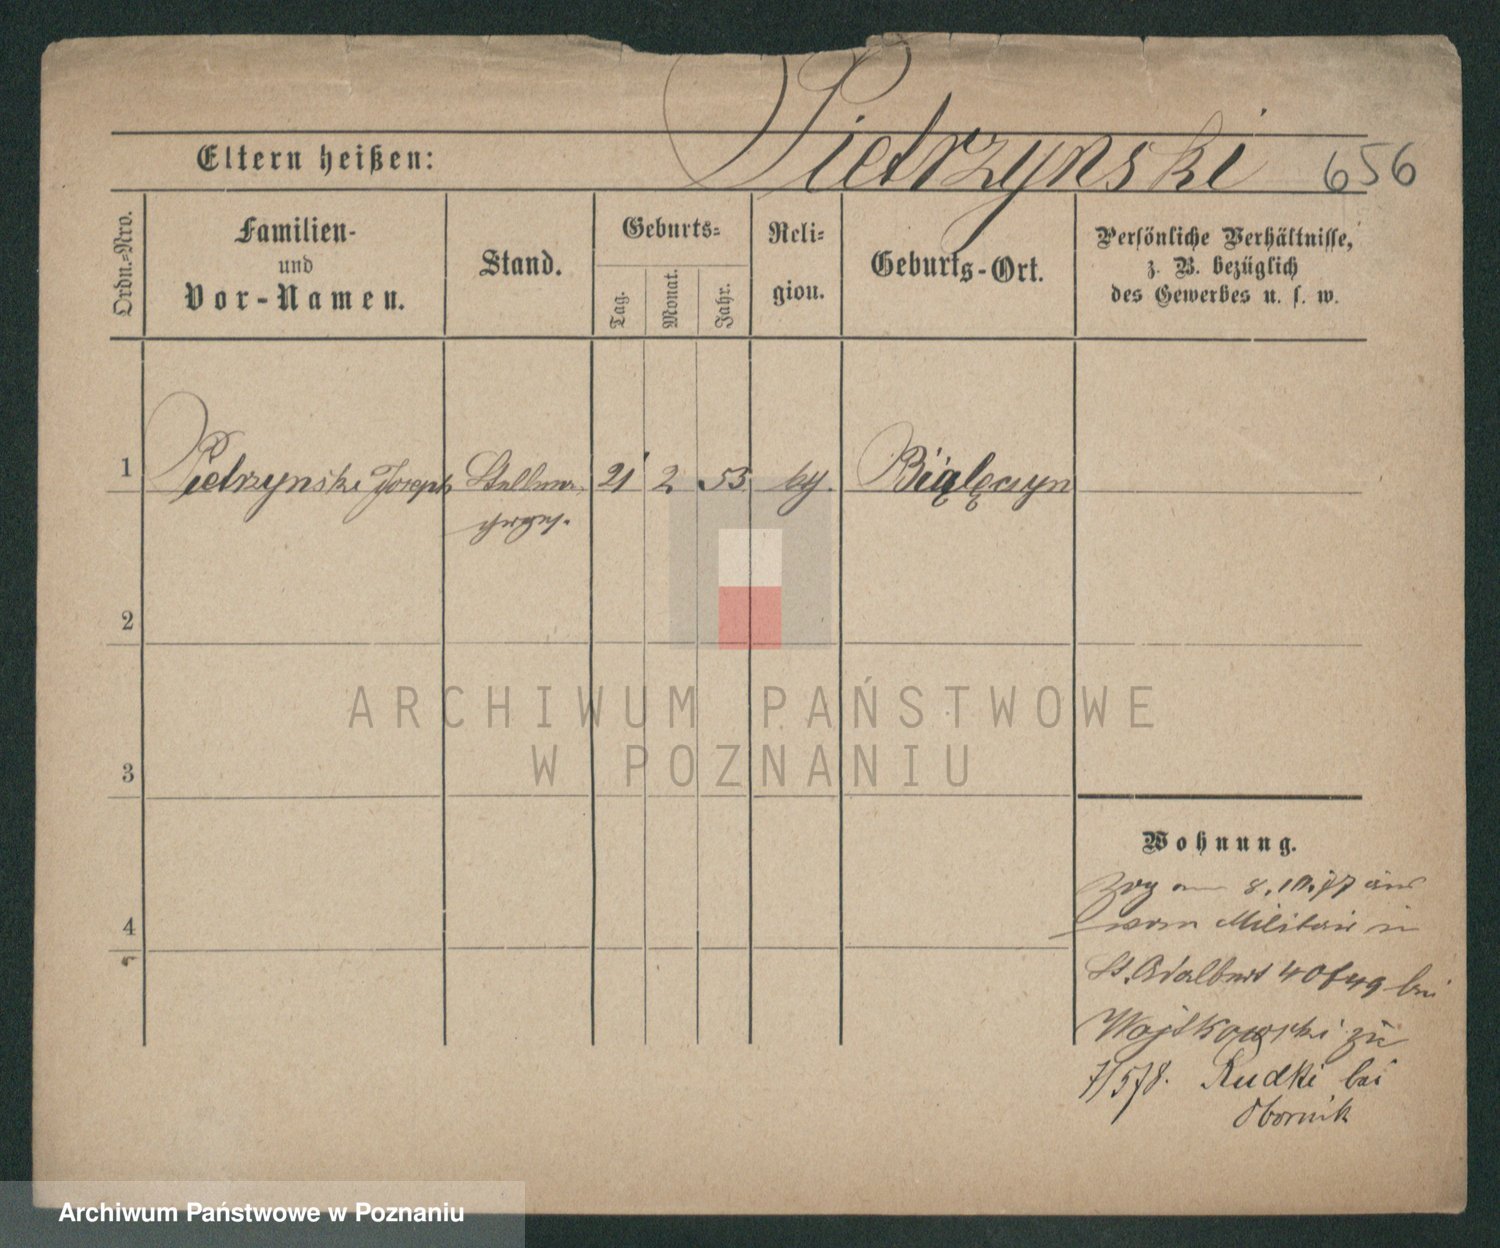 Pietrzynski
656
Eltern heißen:
Ordn.-Nro.
Familien-
und
Vor-Namen.
Stand.
Geburts-
Tag.
Monat.
Jahr.
Reli-
gion.
Geburts-Ort.
Persönliche Verhältnisse,
z. B. bezüglich
des Gewerbes u. s. w.
1 Pietrzynski Joseph Stellm. 21 2. 53 Białęczyn
2
3
4
ARCHIWUM PAŃSTWOWE
W POZNANIU
Wohnung.
Zog am 8.10.77
vom Militair in
St. Adalbert 40/49 bei
Wojtkowski zu
7/5 78. Rudki bei
Obornik
Archiwum Państwowe w Poznaniu